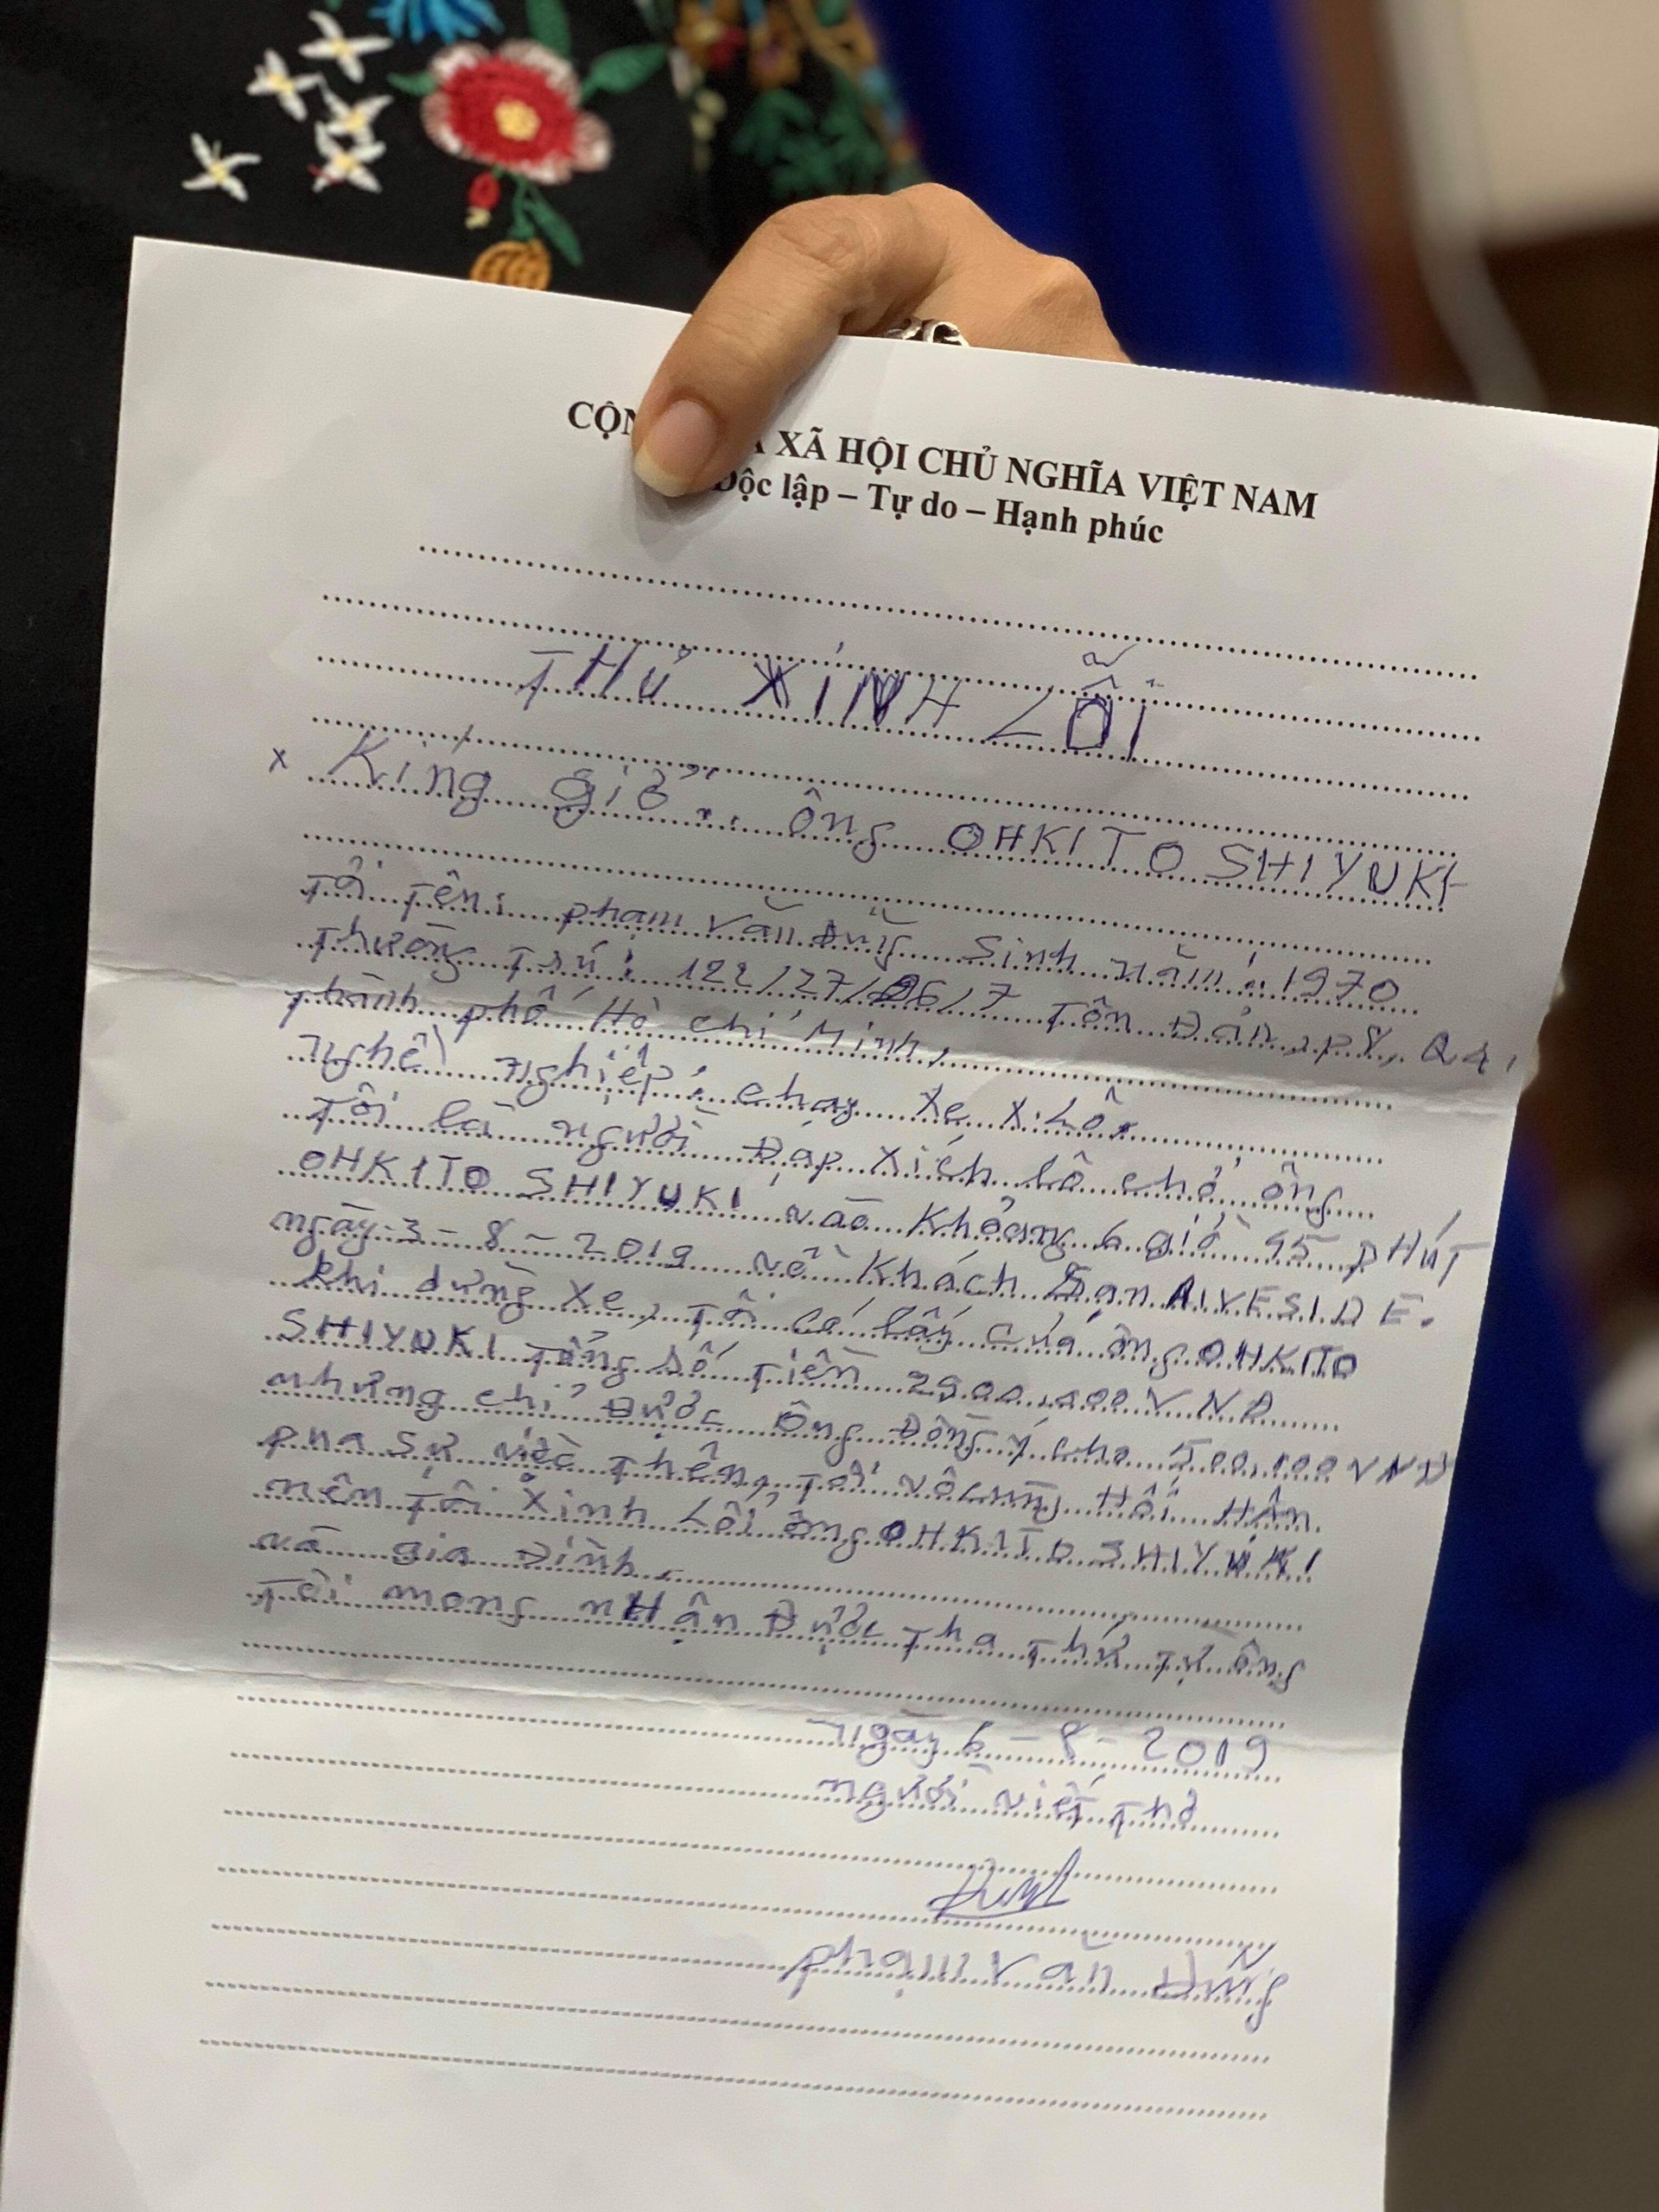 CỘN XÃ HỘI CHỦ NGHĨA VIỆT NAM
Độc lập – Tự do – Hạnh phúc
THƯ XINH LỖI
x Kíng giở: ông OHKITO SHIYUKI
Tôi tên: phạm văn Đũng sinh năm: 1970
Thường trú: 122/27/26/7 Tôn Đản, p8, Q4,
thành phố Hồ chí Minh,
nghề nghiệp: chạy xe x.Lô.
Tôi là người Đạp xích lô chở ông
OHKITO SHIYUKI vào khoảng 6 giờ 45 pHÚT
ngày 3-8-2019 về khách sạn RIVESIDE.
khi dừng xe, Tôi có lấy của ông OHKITO
SHIYUKI Tổng số Tiền 2900.000 VNĐ
nhưng chỉ Được ông Đồng ý cho 500.000 VNĐ
pua sự việc Thên, Tôi vô cùng Hối Hận
nên Tôi xinh Lỗi ông OHKITO SHIYUKI
và gia Đình.
Tôi mong nHận Được Tha Thứ Từ ông
ngày 6-8-2019
người viết Thơ
phạm văn Đũng